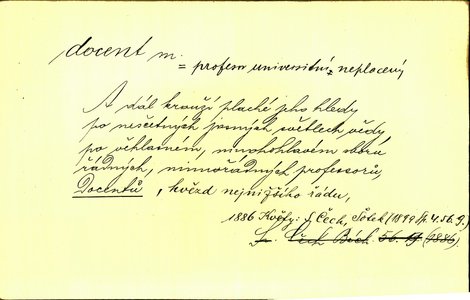 docent m.
= profesor universitní = neplacený
A dál krouží plaché jeho hledy
po nesčetných jasných světlech vědy,
po věhlasném, mnohohlavém sboru
řádných, mimořádných professorů,
Docentů, hvězd nejnižšího řádu,
1886 Květy: S. Čech, Šotek (1899 Sp. 4. 56. 9.)
Sv. Čech Bách. 56. 19 (1886)